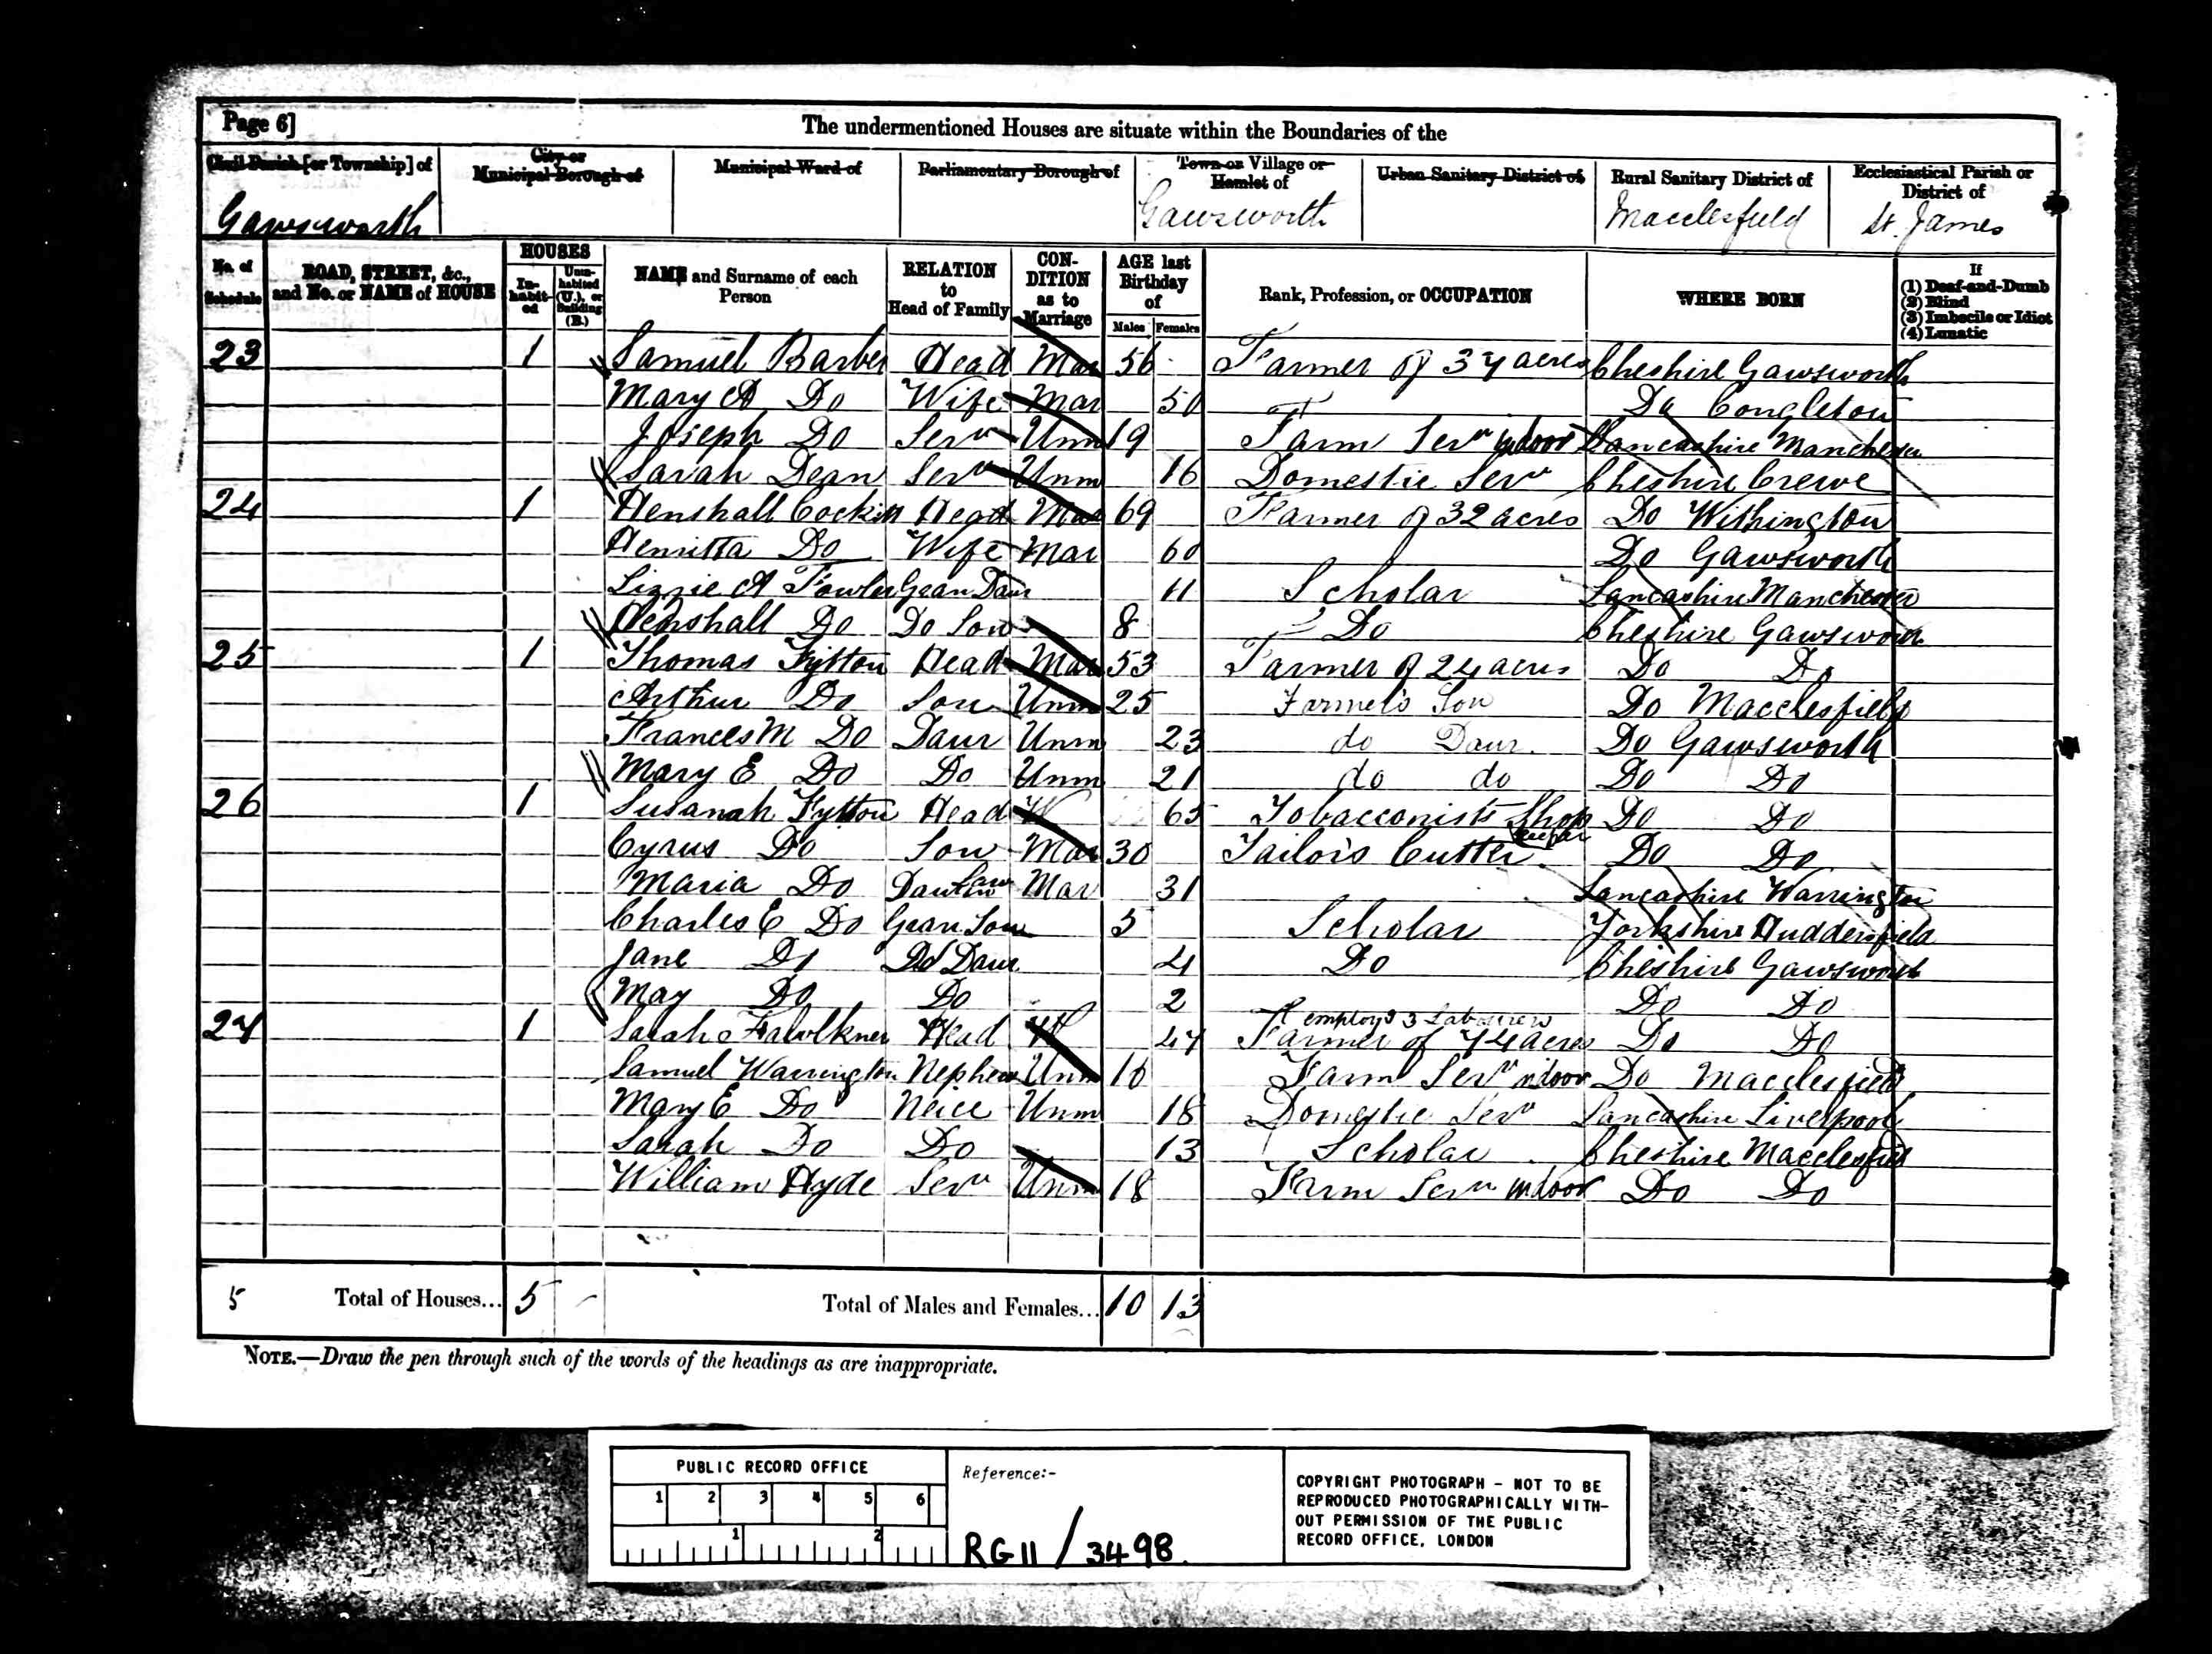 Page 6]
The undermentioned Houses are situate within the Boundaries of the
Civil Parish [or Township] of
City or Municipal Borough of
Municipal Ward of
Parliamentary Borough of
Town or Village or Hamlet of
Urban Sanitary District of
Rural Sanitary District of
Ecclesiastical Parish or District of
Gawsworth Gawsworth Macclesfield St. James
No. of Schedule
ROAD, STREET, &c., and No. or NAME of HOUSE
HOUSES
In-habit-ed
Unin-habited (U.), or Building (B.)
NAME and Surname of each Person
RELATION to Head of Family
CON-DITION as to Marriage
AGE last Birthday of
Males Females
Rank, Profession, or OCCUPATION
WHERE BORN
If
(1) Deaf-and-Dumb
(2) Blind
(3) Imbecile or Idiot
(4) Lunatic
23 1 Samuel Barber Head Mar 56 Farmer of 37 acres Cheshire Gawsworth
Mary A Do Wife Mar 50 Do Congleton
Joseph Do Servt Unm 19 Farm Servt indoor Lancashire Manchester
Sarah Dean Servt Unm 16 Domestic Servt Cheshire Crewe
24 1 Henshall Head Mar 69 Farmer of 32 acres Do Withington
Henritta Do Wife Mar 60 Do Gawsworth
Lizzie A Fowler Gran Daur 11 Scholar Lancashire Manchester
Henshall Do Do Son 8 Do Cheshire Gawsworth
25 1 Thomas Fytton Head Mar 53 Farmer of 24 acres Do Do
Arthur Do Son Unm 25 Farmer's Son Do Macclesfield
Frances M Do Daur Unm 23 do Daur. Do Gawsworth
Mary E Do Do Unm 21 do do Do Do
26 1 Susanah Fytton Head W 65 Tobacconists Shop keeper Do Do
Cyrus Do Son Mar 30 Tailors Cutter Do Do
Maria Do Daur in Law Mar 31 Lancashire Warrington
Charles E Do Gran Son 5 Scholar Yorkshire Huddersfield
Jane Do Do Daur 4 Do Cheshire Gawsworth
May Do Do 2 Do Do
27 1 Sarah Faulkner Head W 47 Farmer of 74 acres employs 3 Labourers Do Do
Samuel Warrington Nephew Unm 16 Farm Servt indoor Do Macclesfield
Mary E Do Neice Unm 18 Domestic Servt Lancashire Liverpool
Sarah Do Do 13 Scholar Cheshire Macclesfield
William Hyde Servt Unm 18 Farm Servt indoor Do Do
5 Total of Houses... 5 - Total of Males and Females... 10 13
NOTE.—Draw the pen through such of the words of the headings as are inappropriate.
PUBLIC RECORD OFFICE
1 2 3 4 5 6
1 2
Reference:-
RG 11 / 3498
COPYRIGHT PHOTOGRAPH - NOT TO BE
REPRODUCED PHOTOGRAPHICALLY WITH-
OUT PERMISSION OF THE PUBLIC
RECORD OFFICE, LONDON